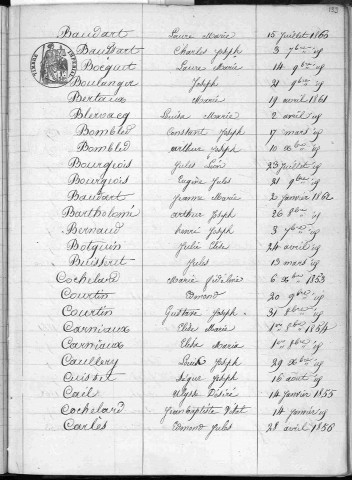 132
Baudart Laure Marie 15 juillet 1863
Baussart Charles Joseph 3 7bre id
Bocquet Laure Marie 14 9bre id
Boulanger Joseph 21 9bre id
Berteaux Marie 19 avril 1861
Blervacq Luisa Marie 2 avril id
Bombled Constant Joseph 17 mars id
Bombled arthur Joseph 10 Xbre id
Bourgeois Jules 23 juillet id
Bourgeois Eugène Jules 21 9bre id
Baudart Jeanne Marie 2 janvier 1862
Bartholomé arthur Joseph 26 8bre id
Bernaud henri Joseph 3 7bre id
Botquin Julie Elise 24 avril id
Buissart Jules 13 mars id
Cochelard Marie 6 Xbre 1853
Courtin Edmond 20 9bre id
Courtin Gustave Joseph 31 8bre id
Carniaux Elise Marie 1er 8bre 1854
Carniaux Elise Maria 1er 8bre id
Caullery Louis Joseph 29 Xbre id
Cuisset Joseph 16 août id
Cail Ulysse Désiré 14 janvier 1855
Cochelard Jean Baptiste 14 janvier id
Carlès Edmond Jules 28 avril 1856